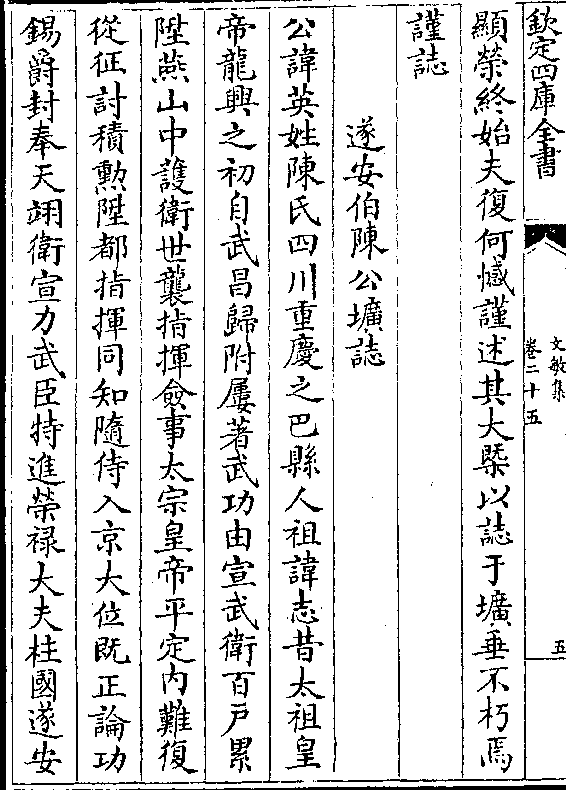 欽定四庫全書
文敏集
卷二十五
五
顯榮終始夫復何憾謹述其大槩以誌于壙垂不朽焉
謹誌
遂安伯陳公壙誌
公諱英姓陳氏四川重慶之巴縣人祖諱志昔太祖皇
帝龍興之初自武昌歸附屢著武功由宣武衛百戸累
陞燕山中護衛世襲指揮僉事太宗皇帝平定内難復
從征討積勲陞都指揮同知隨侍入京大位既正論功
錫爵封奉天翊衛宣力武臣特進榮禄大夫柱國遂安